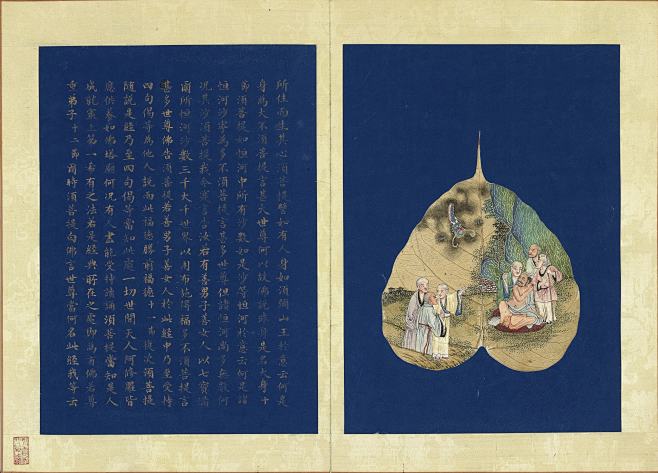 所住而生其心須菩提譬如有人身如須彌山王於意云何是
身為大不須菩提言甚大世尊何以故佛說非身是名大身十
節須菩提如恒河中所有沙數如是沙等恒河於意云何是諸
恒河沙寧為多不須菩提言甚多世尊但諸恒河尚多無數何
況其沙須菩提我今實言告汝若有善男子善女人以七寶滿
爾所恒河沙數三千大千世界以用布施得福多不須菩提言
甚多世尊佛告須菩提若善男子善女人於此經中乃至受持
四句偈等為他人說而此福德勝前福德十一節復次須菩提
隨說是經乃至四句偈等當知此處一切世間天人阿修羅皆
應供養如佛塔廟何況有人盡能受持讀誦須菩提當知是人
成就最上第一希有之法若是經典所在之處即為有佛若尊
重弟子十二節爾時須菩提白佛言世尊當何名此經我等云